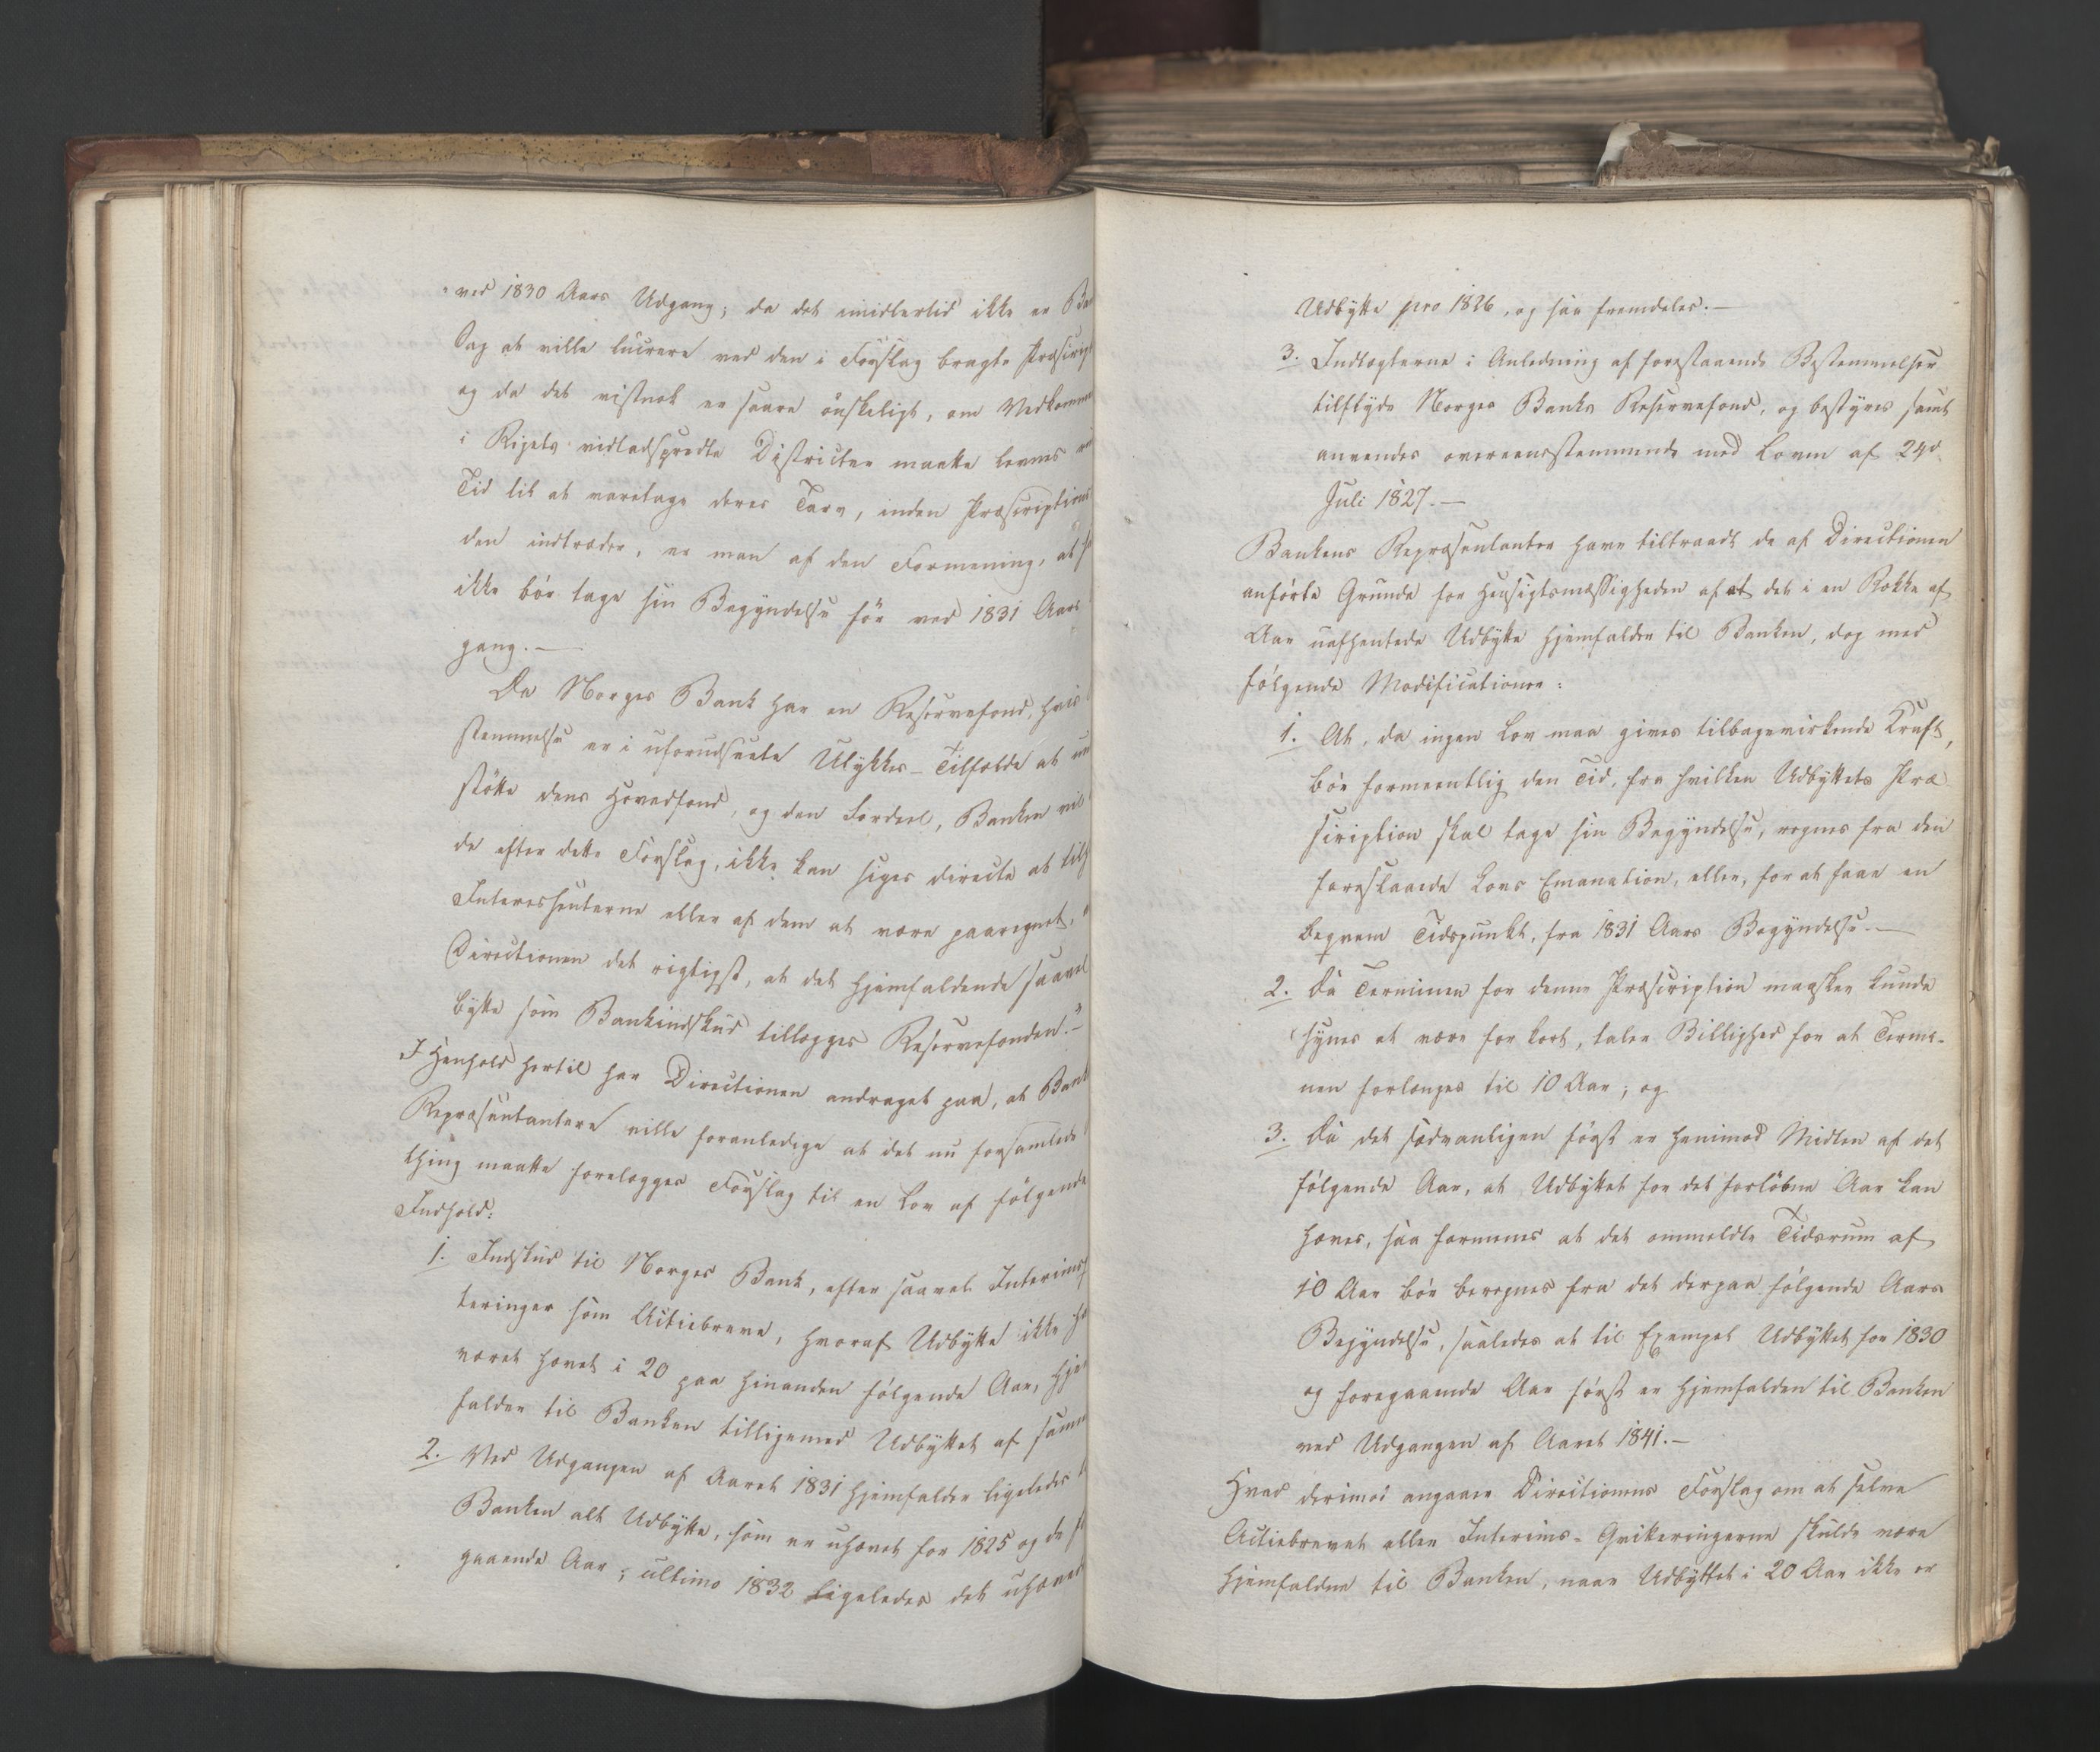 ved 1830 Aars Udgang; da det imidlertid ikke er Ba
Sag at ville lucrere ved den i Forslag bragte Præscript
og da det vistnok er saare ønskeligt, om Vedkomme
i Rigets vidtadspredte Districter maatte levnes
Tid til at varetage deres Tarv, inden Præscriptions
den indtræder, er man af den Formening, at
ikke bør tage sin Begyndelse før ved 1831 Aars
gang.—
Da Norges Bank har en Reservefond, hvis
stemmelse er i uforudseete Ulykkes-Tilfælde at un
støtte dens Hovedfond, og den Fordeel, Banken vil
de efter dette Forslag, ikke kan siges directe at
Interessenterne eller af dem at være paaregnet,
Directionen det rigtigst, at det hjemfaldende saavel
bytte som Bankindskud tillægges Reservefonden.—
I Henhold hertil har Directionen andraget paa, at Bank
Repræsentantere ville foranledige at det nu forsamlede
thing maatte forelægges Forslag til en Lov af følgende
Indhold:
1. Indskud til Norges Bank, efter saavel Interims
teringer som Actiebreve, hvoraf Udbytte ikke ha
været hævet i 20 paa hinanden følgende Aar, hje
falder til Banken tilligemed Udbyttet af samm
2. Ved Udgangen af Aaret 1831 hjemfalder ligeledes
Banken alt Udbytte, som er uhævet for 1825 og de
gaaende Aar; ultimo 1832 ligeledes det uhævet
Udbytte pro 1826, og saa fremdeles.—
3. Indtægterne i Anledning af forestaaende Bestemmelser
tilflyde Norges Banks Reservefond, og bestyres samt
anvendes overeensstemmende med Loven af 24de
Juli 1827.—
Bankens Repræsentanter have tiltraadt de af Directionen
anførte Grunde for Hensigtsmæssigheden af at det i en Række af
Aar uafhentede Udbytte hjemfalder til Banken, dog med
følgende Modificationer:
1. At, da ingen Lov maa gives tilbagevirkende Kraft,
bør formeentlig den Tid, fra hvilken Udbyttets Præ
scription skal tage sin Begyndelse, regnes fra den
foreslaaede Lovs Emanation, eller, for at faae en
beqvem Tidspunkt, fra 1831 Aars Begyndelse.—
2. Da Terminen for denne Præscription maaskee kunde
synes at være for kort, taler Billighed for at Termi-
nen forlænges til 10 Aar; og
3. Da det sædvanligen først er henimod Midten af det
følgende Aar, at Udbyttet for det forløbne Aar kan
hæves, saa formenes at det ommeldte Tidsrum af
10 Aar bør beregnes fra det derpaa følgende Aars
Begyndelse, saaledes at til Exempel Udbyttet for 1830
og foregaaende Aar først er hjemfalden til Banken
ved Udgangen af Aaret 1841.—
Hvad derimod angaaer Directionens Forslag om at selve
Actiebrevet eller Interims-Qvitteringerne skulde være
hjemfaldne til Banken, naar Udbyttet i 20 Aar ikke er